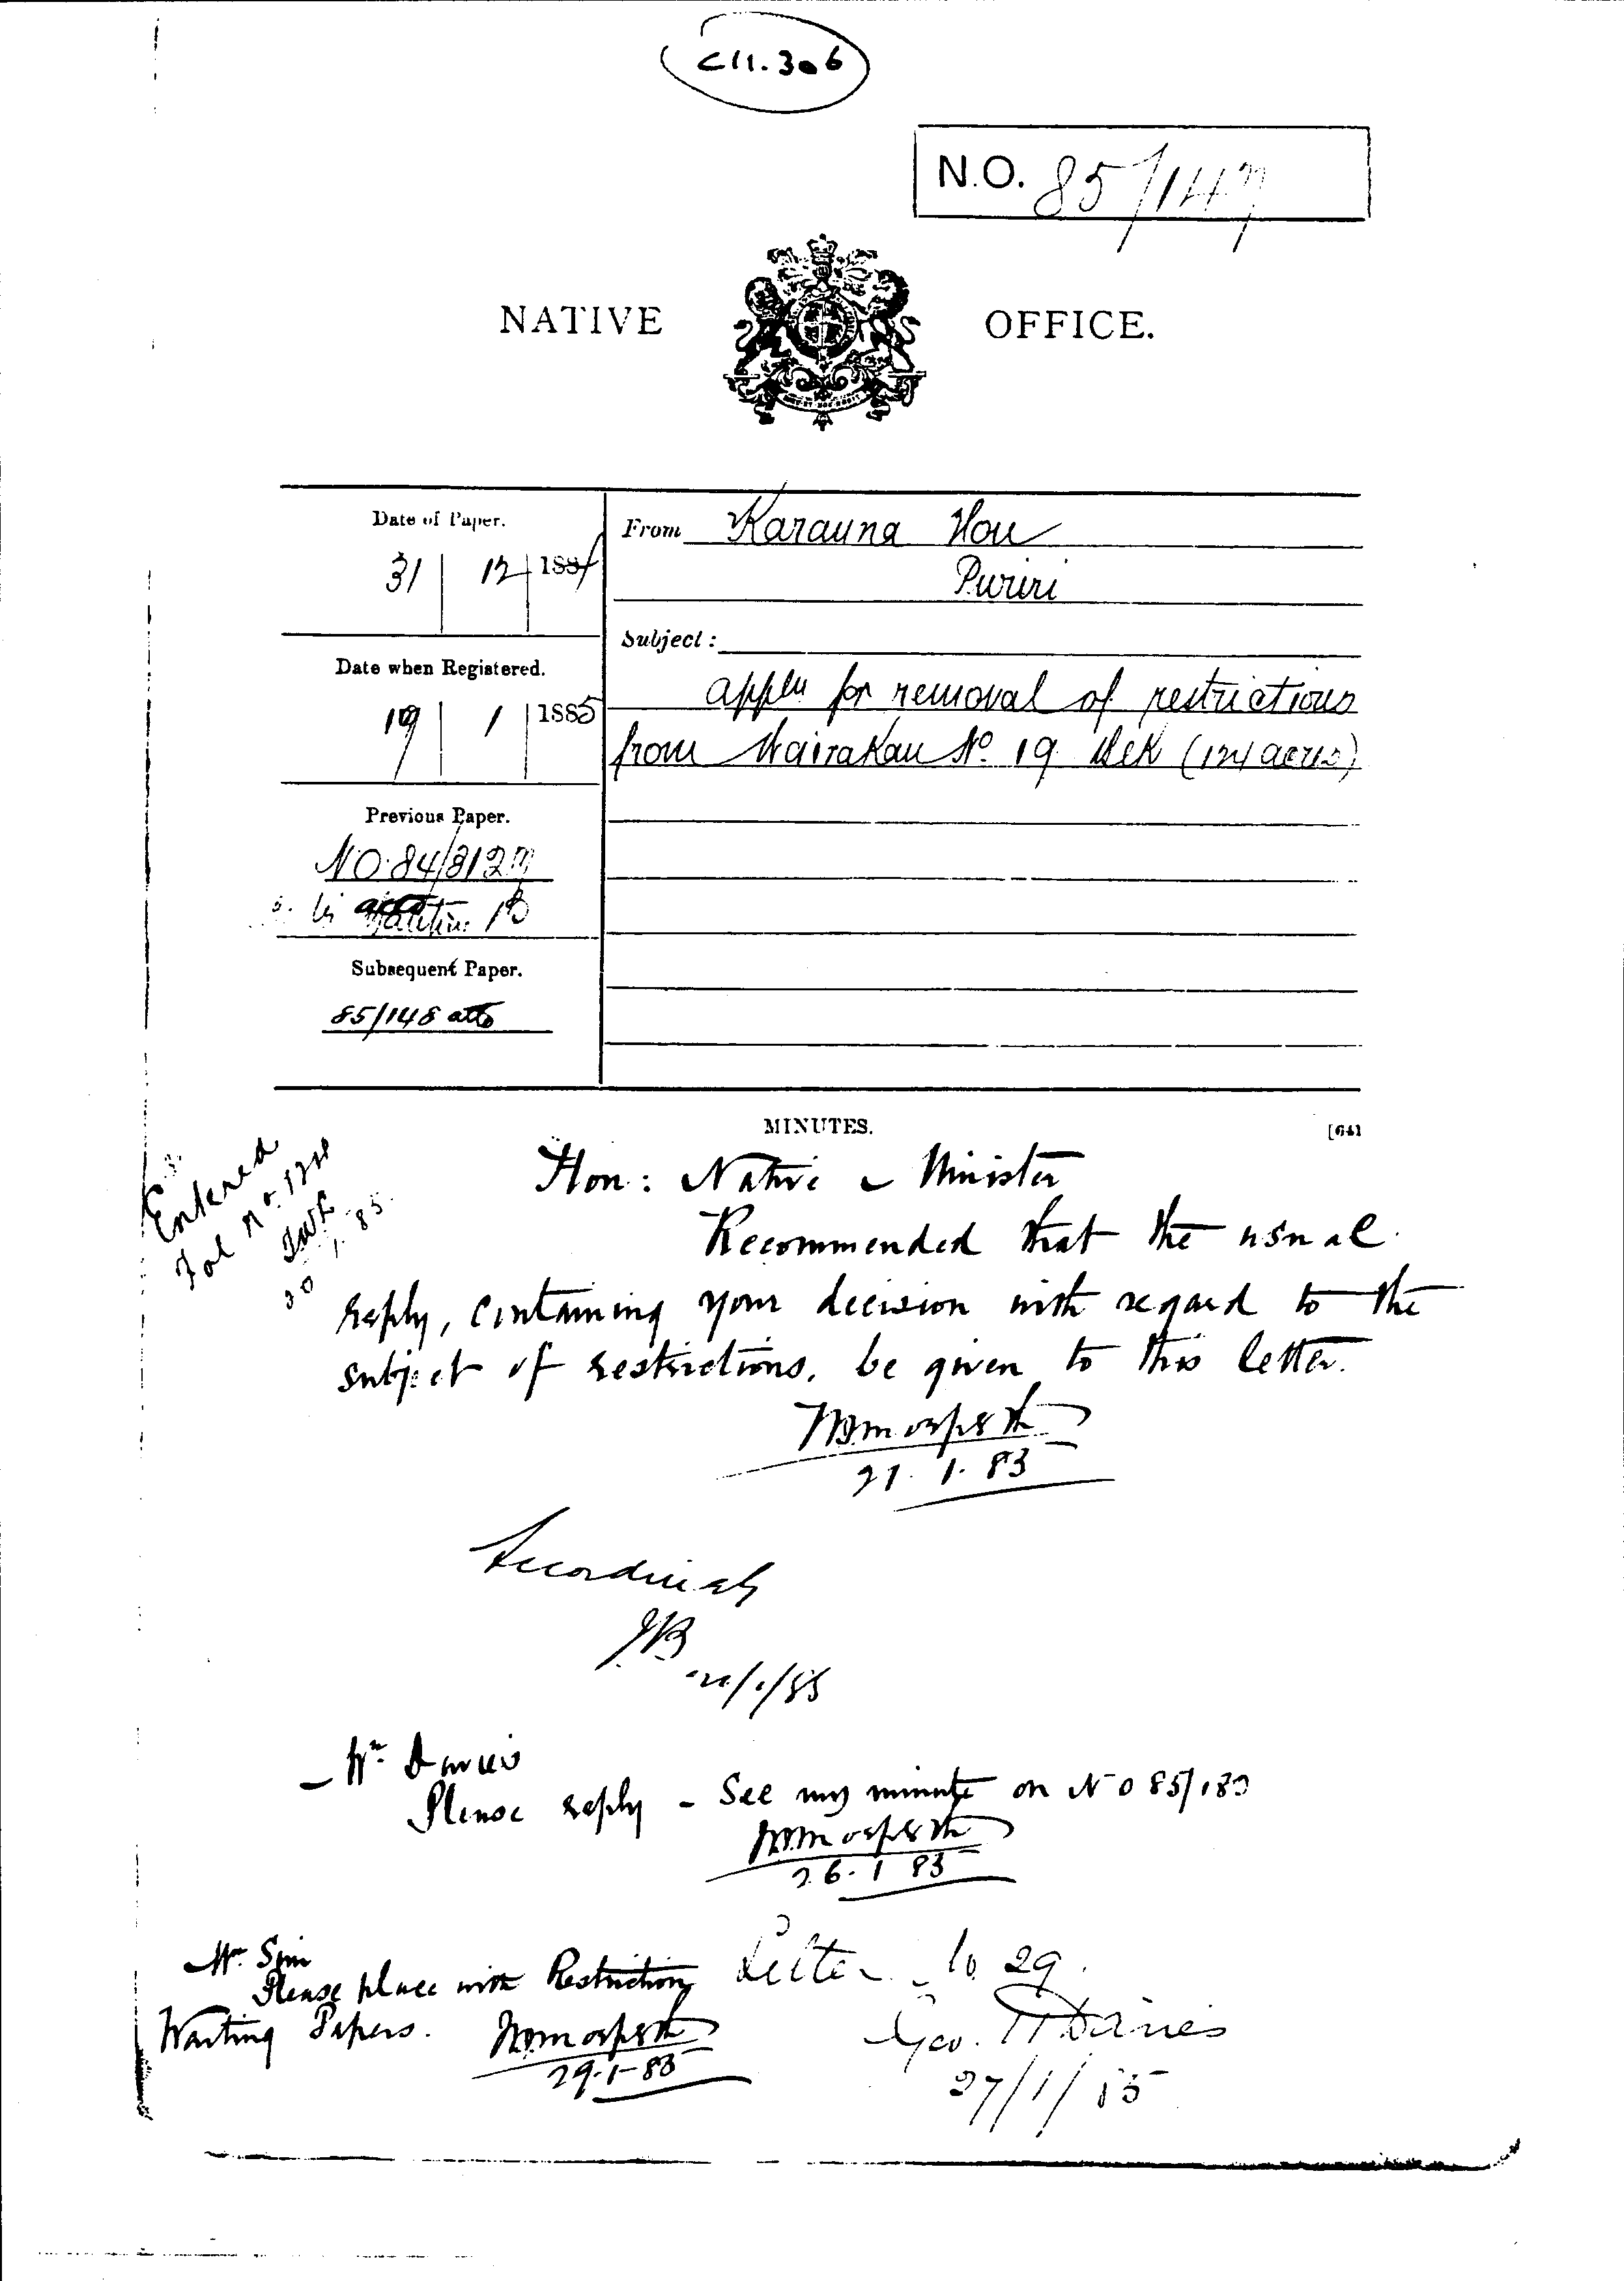 C11.306
N.O. 85/147
NATIVE OFFICE.
Date of Paper.
31 12 1884
From Karauna Hou
Puriri
Subject:
apply for removal of restrictions
from Wairakau No. 19 Blk (124 acres)
Date when Registered.
19 1 1885
Previous Paper.
NO. 84/3127
Subsequent Paper.
85/148 atto
MINUTES.
[641
Entered
Fol No. 124
20 1. 85.
Hon: Native Minister
Recommended that the usual
reply, containing your decision with regard to the
subject of restrictions, be given to this letter.
TWMorpeth
21. 1. 85
Accordingly
JB
/1/85
Mr. Davies
Please reply - See my minute on NO 85/130
TWMorpeth
26. 1 85
Mr. Sim
Please place with Restriction
Waiting Papers.
TWMorpeth
29-1-85
Letter No 29.
Geo. H Davies
27/1/85